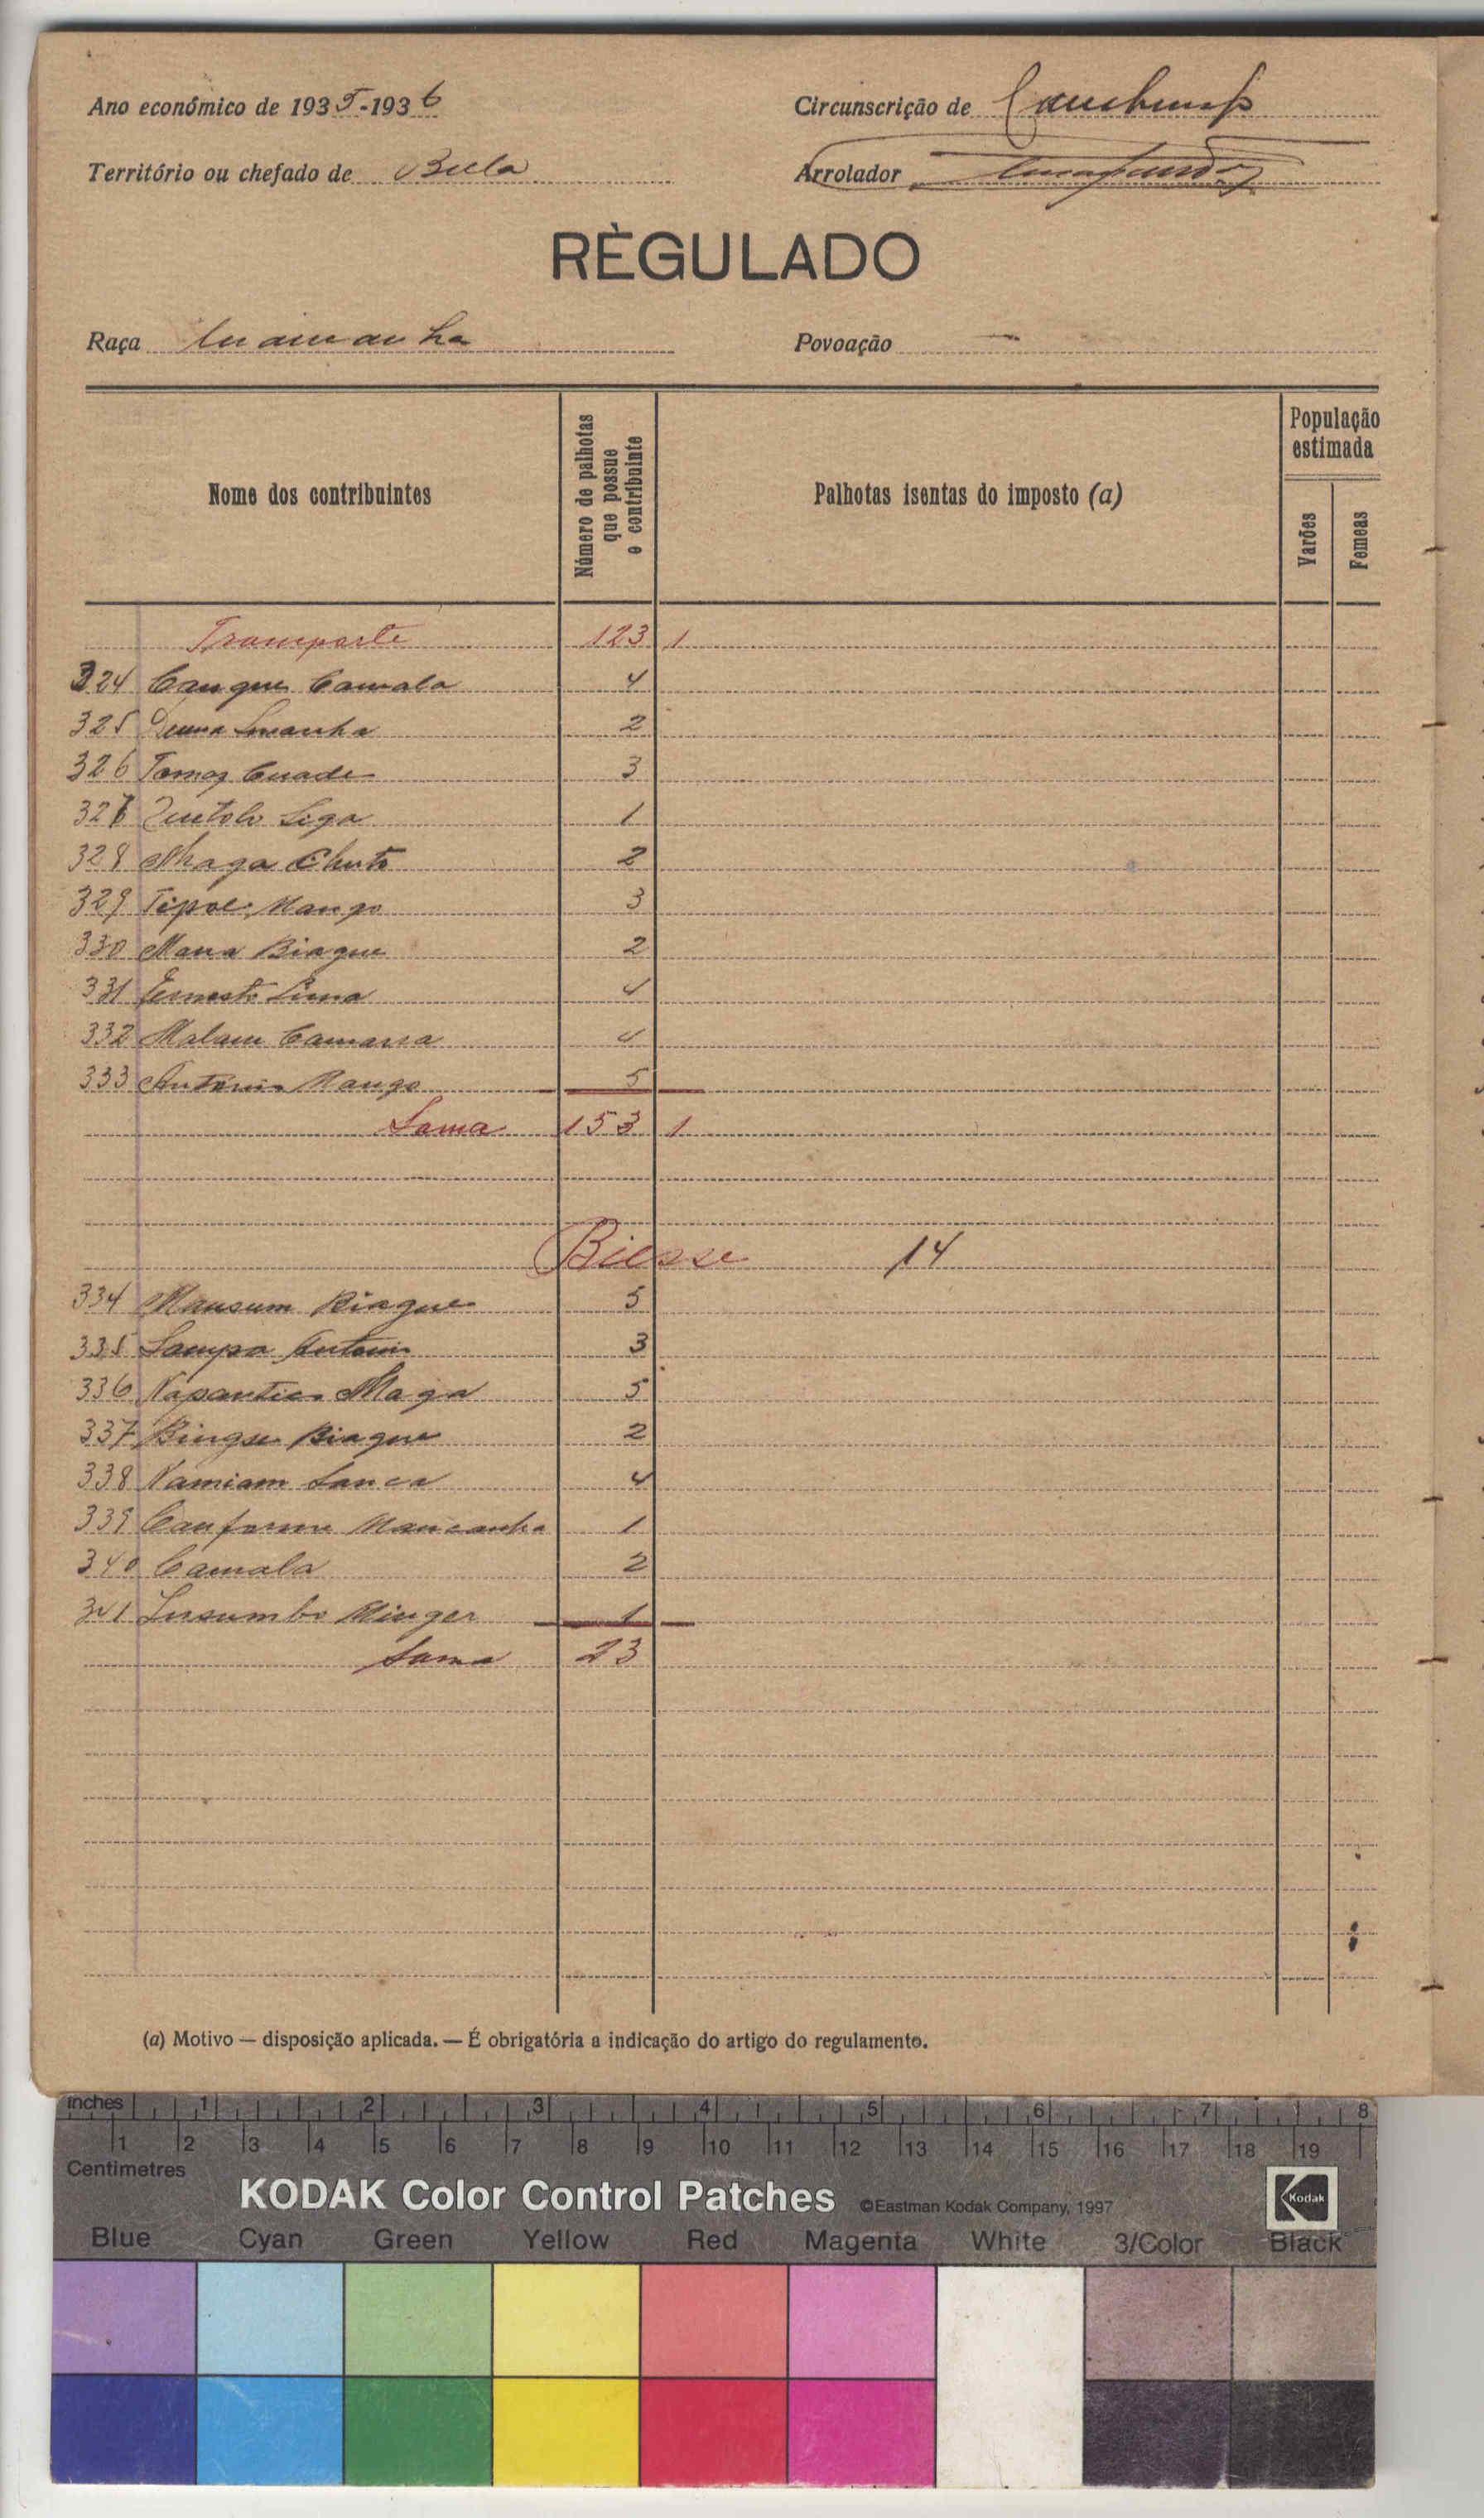 Ano económico de 1935-1936
Circunscrição de
Território ou chefado de Bula
Arrolador
RÈGULADO
Raça
Povoação —
Nome dos contribuintes
Número de palhotas que possue o contribuinte
Palhotas isentas do imposto (a)
População estimada
Varões
Femeas
Transporte 123 1
324 Cangue Camala 4
325 2
326 Tomaz Cuade 3
327 Liga 1
328 Maga Chute 2
329 Tipoe Mango 3
330 Mana Biague 2
331 Ernesto Lima 4
332 Malam Camassa 4
333 António Mango 5
Soma 153 1
Biesse 14
334 Mansum Biague 5
335 Sampa Antonio 3
336 Maga 5
337 Bingue Biague 2
338 Namiam Sanca 4
339 Mancanha 1
340 Camala 2
341 Lusumbo Minger 1
Soma 23
(a) Motivo — disposição aplicada. — É obrigatória a indicação do artigo do regulamento.
inches 1 2 3 4 5 6 7 8
1 2 3 4 5 6 7 8 9 10 11 12 13 14 15 16 17 18 19
Centimetres
KODAK Color Control Patches ©Eastman Kodak Company, 1997 Kodak
Blue Cyan Green Yellow Red Magenta White 3/Color Black